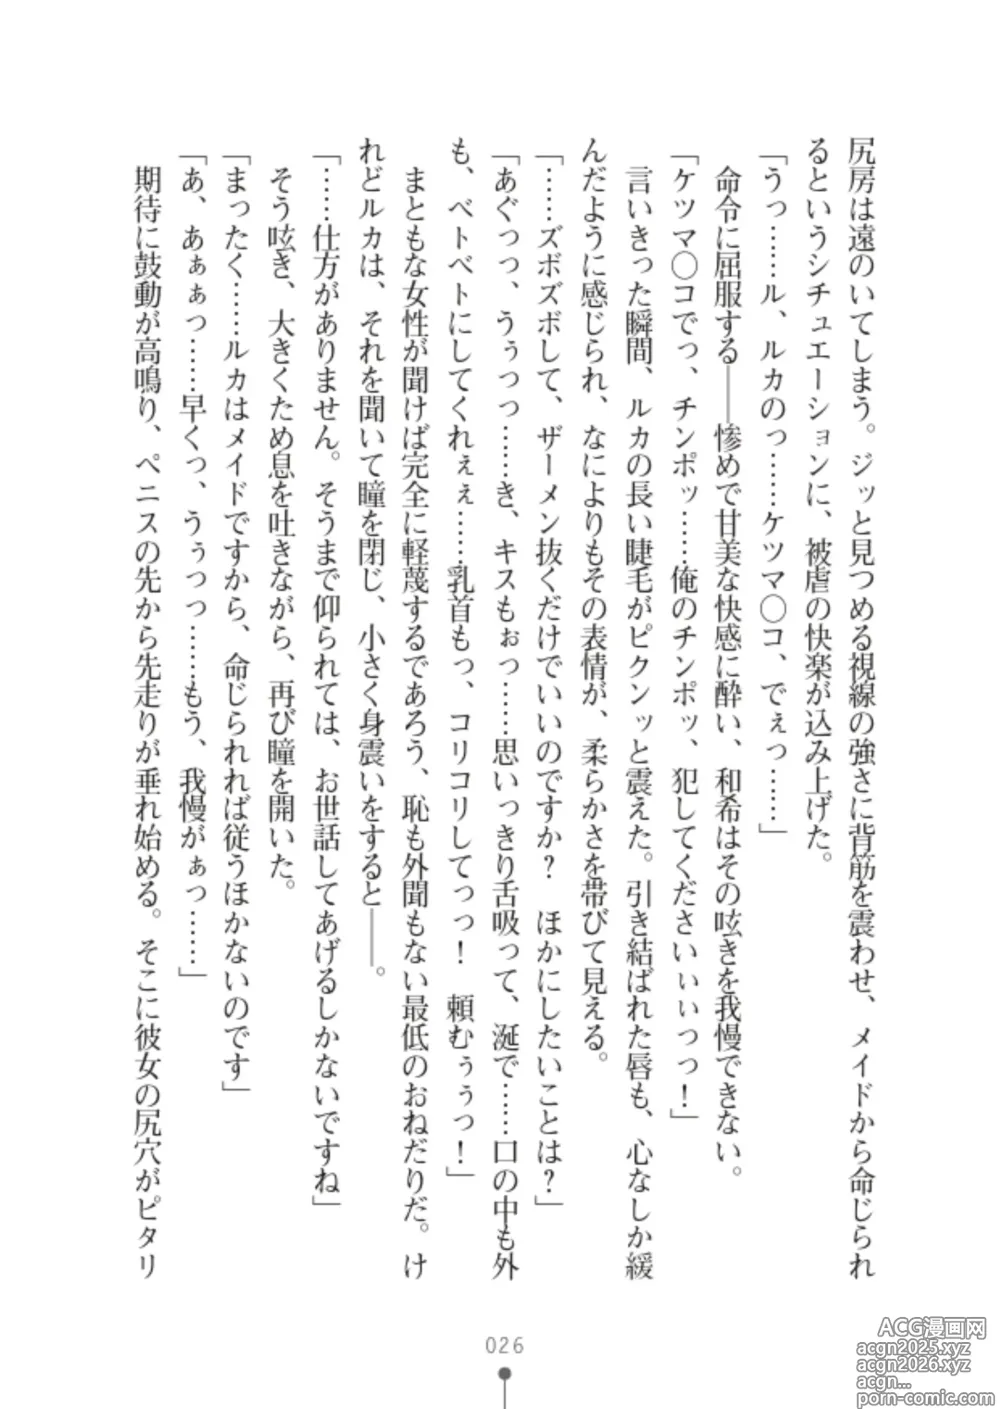 尻房は遠のいてしまう。ジッと見つめる視線の強さに背筋を震わせ、メイドから命じられ
るというシチュエーションに、被虐の快楽が込み上げた。
「うっ……ル、ルカのっ……ケツマ〇コ、でぇっ……」
命令に屈服する――惨めで甘美な快感に酔い、和希はその呟きを我慢できない。
「ケツマ〇コでっ、チンポッ……俺のチンポッ、犯してくださいぃぃっっ！」
言いきった瞬間、ルカの長い睫毛がピクンッと震えた。引き結ばれた唇も、心なしか緩
んだように感じられ、なによりもその表情が、柔らかさを帯びて見える。
「……ズボズボして、ザーメン抜くだけでいいのですか？　ほかにしたいことは？」
「あぐっっ、うぅっっ……き、キスもぉっ……思いっきり舌吸って、涎で……口の中も外
も、ベトベトにしてくれぇぇ……乳首もっ、コリコリしてっっ！　頼むぅぅっ！」
まともな女性が聞けば完全に軽蔑するであろう、恥も外聞もない最低のおねだりだ。け
れどルカは、それを聞いて瞳を閉じ、小さく身震いをすると――。
「……仕方がありません。そうまで仰られては、お世話してあげるしかないですね」
そう呟き、大きくため息を吐きながら、再び瞳を開いた。
「まったく……ルカはメイドですから、命じられれば従うほかないのです」
「あ、あぁぁっ……早くっ、うぅっっ……もう、我慢がぁっ……」
期待に鼓動が高鳴り、ペニスの先から先走りが垂れ始める。そこに彼女の尻穴がピタリ
026
ACG漫画网
acgn2025.xyz
acgn2026.xyz
acgn...
porn-comic.com